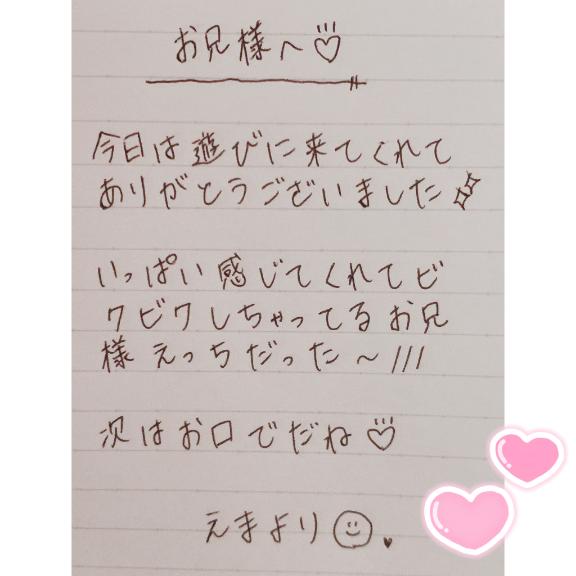 お兄様へ♡
今日は遊びに来てくれて
ありがとうございました
いっぱい感じてくれてビ
クビクしちゃってるお兄
様えっちだった〜///
次はお口でだね♡
えまより